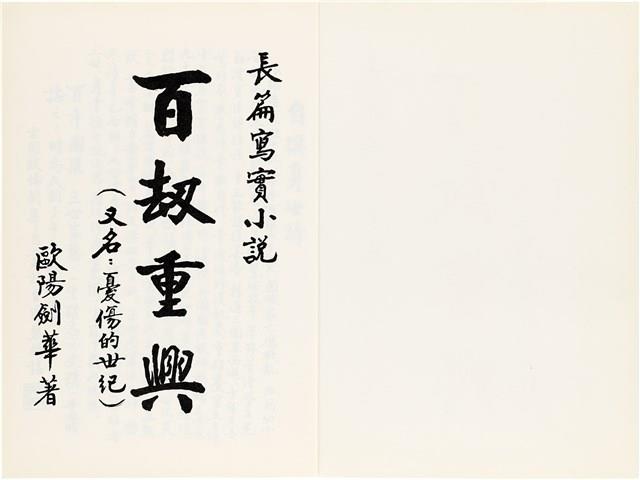 長篇寫實小説
百刼重興
（又名：憂傷的世紀）
歐陽劍華著